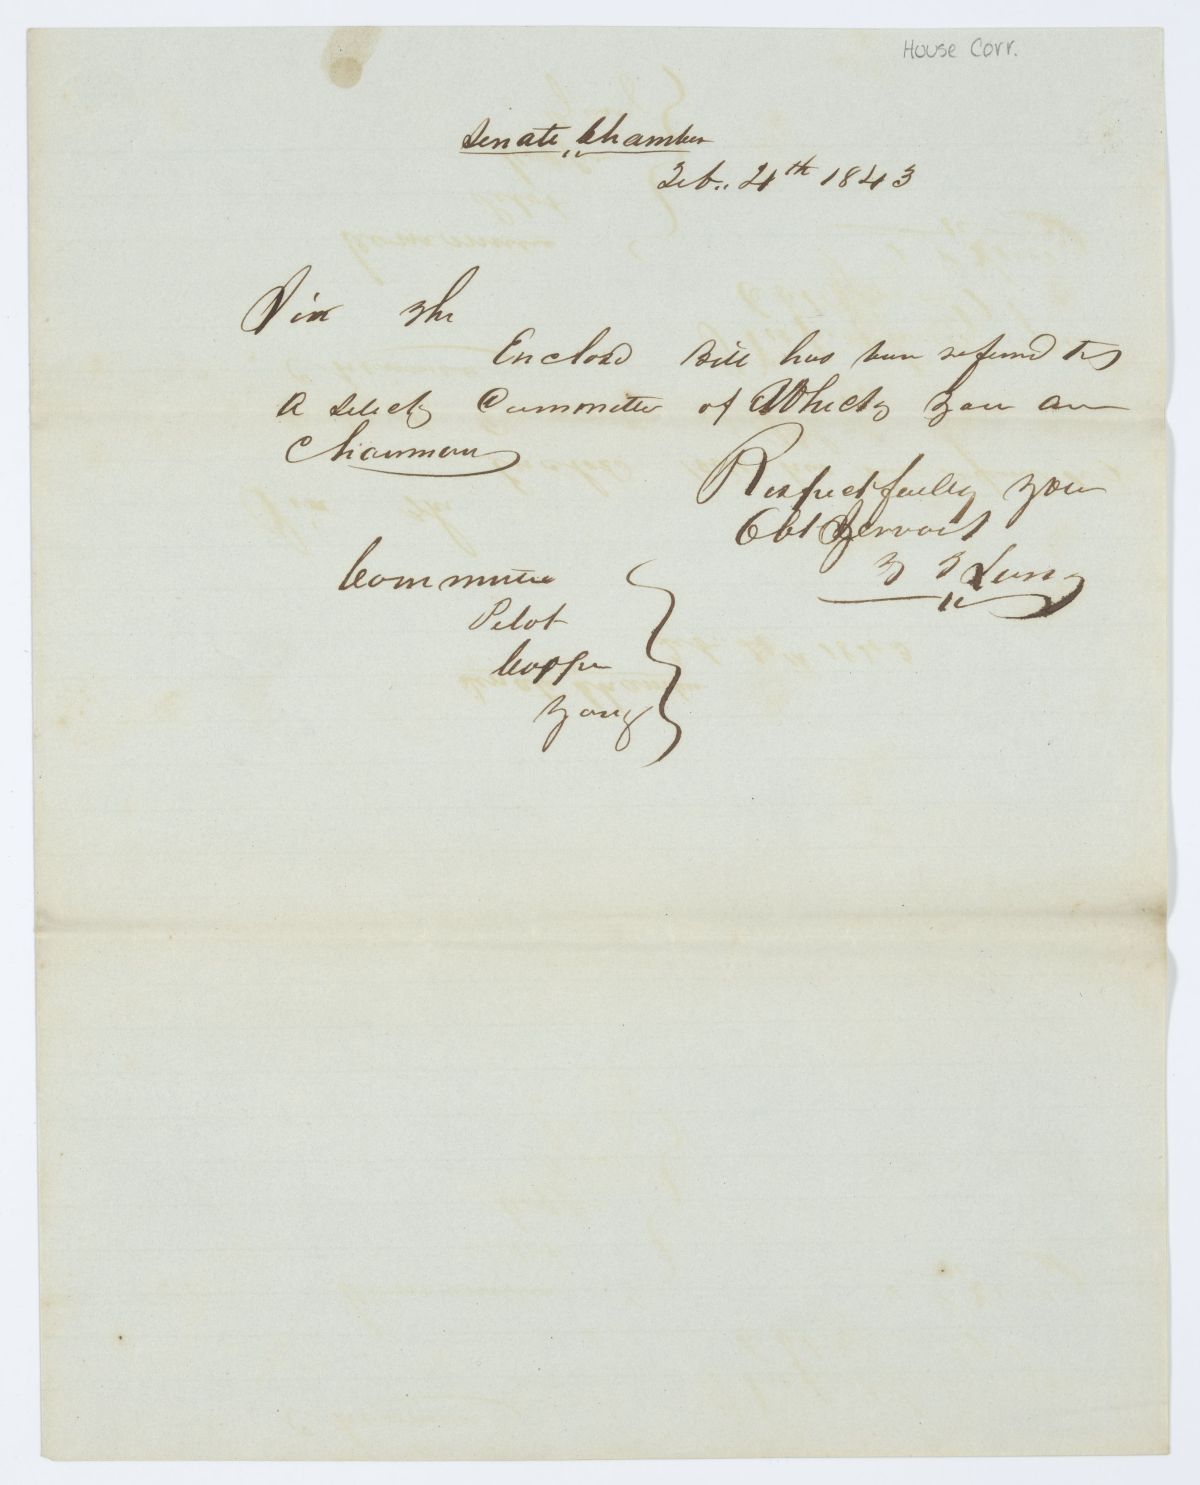 House Corr.
Senate Chamber
Feb. 4th 1843
Sir The
Enclosd Bill has been referred to
A Select Committee of Which you are
Chairman
Respectfully your
Obt Servant
Committee
Pilot
Cooper